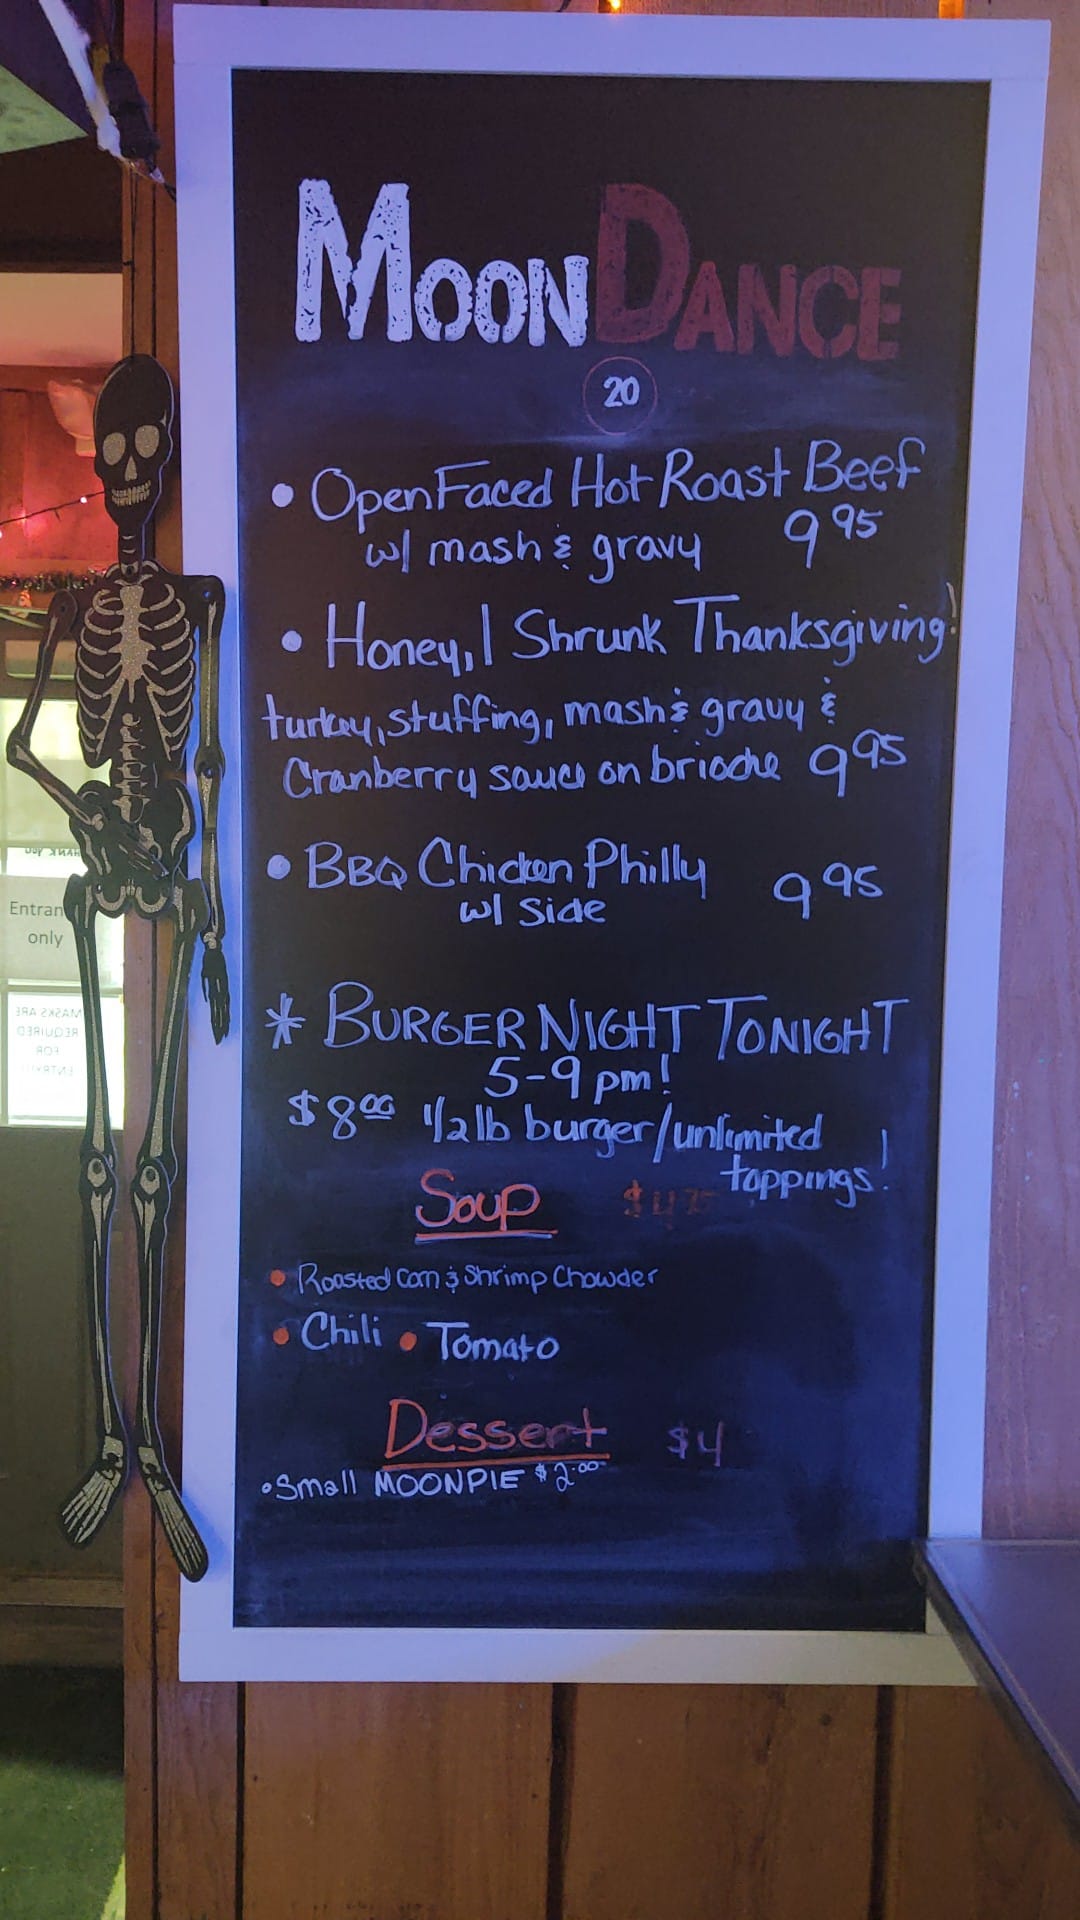 MOONDANCE
20
• Open Faced Hot Roast Beef
w/ mash & gravy 9 95
• Honey, I Shrunk Thanksgiving!
turkey, stuffing, mash & gravy &
Cranberry sauce on brioche 9 95
• BBQ Chicken Philly 9 95
w/ side
* BURGER NIGHT TONIGHT
5-9 pm!
$8 00 1/2 lb burger/unlimited
toppings!
Soup $4 75
• Roasted Corn & Shrimp Chowder
• Chili • Tomato
Dessert $4
• Small MOONPIE $2.00
THANK YOU
Entran
only
MASKS ARE
REQUIRED
FOR
ENTRY!!!